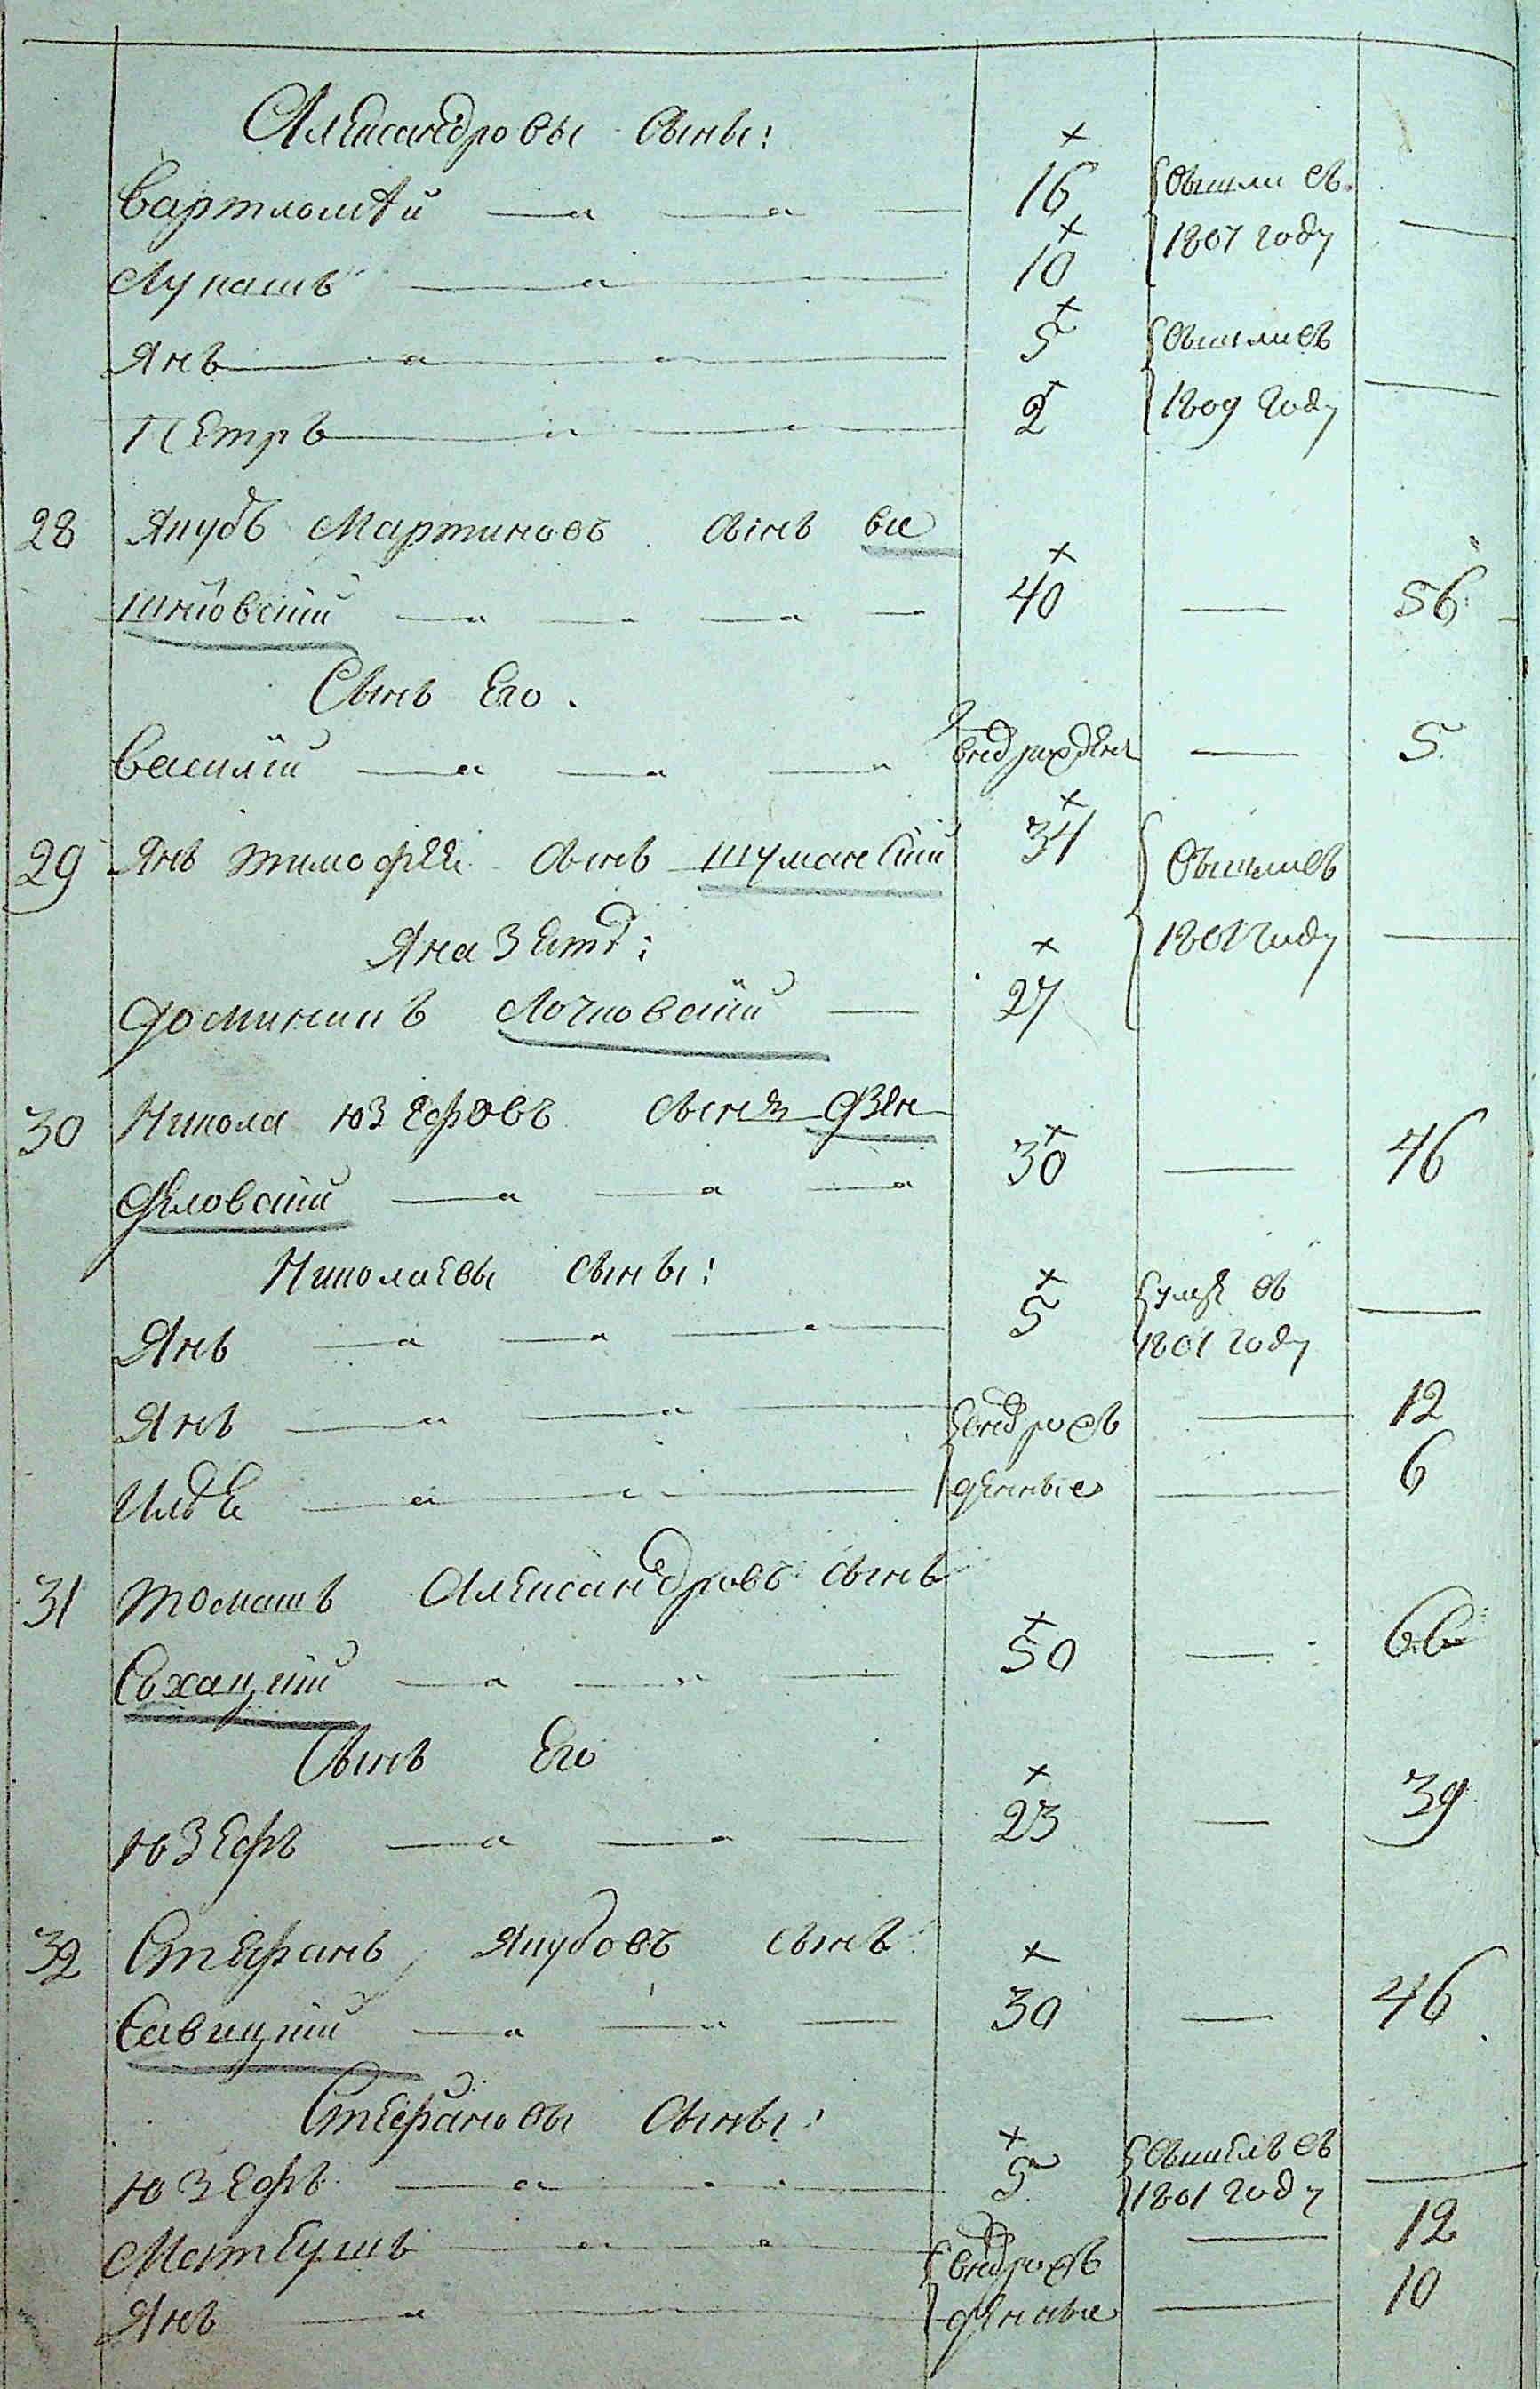 Александровы сыны:
Вартломѣй 16 вышли въ
Лукашъ 10 1807 году
Янъ 5 вышли въ
Петръ 2 1809 году
28 Якубъ Мартиновъ сынъ ви
шнiовскiй 40 56
Сынъ Его.
Василiй 5
29 Янъ тимофѣя сынъ шуманскiй 34 вышли въ
Яна Зять: году
Доминикъ Лочковскiй 27
30 Никола юзефовъ сынъ
філовскiй 30 46
Николаевы сыны:
Янъ 5 умре въ
1801 году
Янъ внов рож 12
Илья денные 6
31 томашъ Александровъ сынъ
Сохацкiй 50 66
Сынъ Его
юзефъ 23 39
32 Стефанъ Якубовъ сынъ
Савицкiй 30 46
Стефановы сыны:
юзефъ 5 вышелъ въ
1801 году
Матеушъ внов рож 12
Янъ денные 10